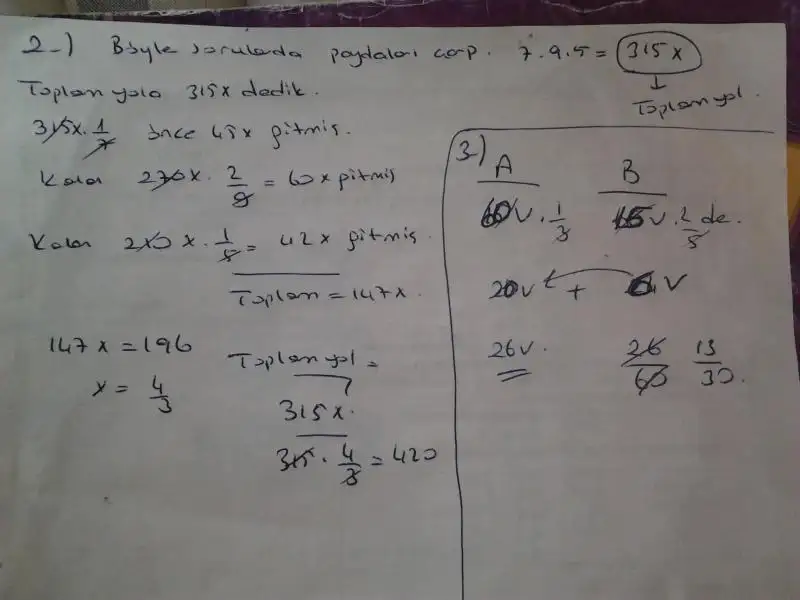 2-) Böyle sorularda paydaları çarp. 7.9.5 = 315x
↓
Toplam yol.
Toplam yola 315x dedik.
315x . 1/7 önce 45x gitmiş.
Kalan 270x . 2/9 = 60x gitmiş
Kalan 210x . 1/5 = 42x gitmiş.
Toplam = 147x.
147x = 196
x = 4/3
Toplam yol =
315x.
315 . 4/3 = 420
3-) A B
60V . 1/3 15V . 2/5 de.
20V + 6V
26V. 26/60 13/30.